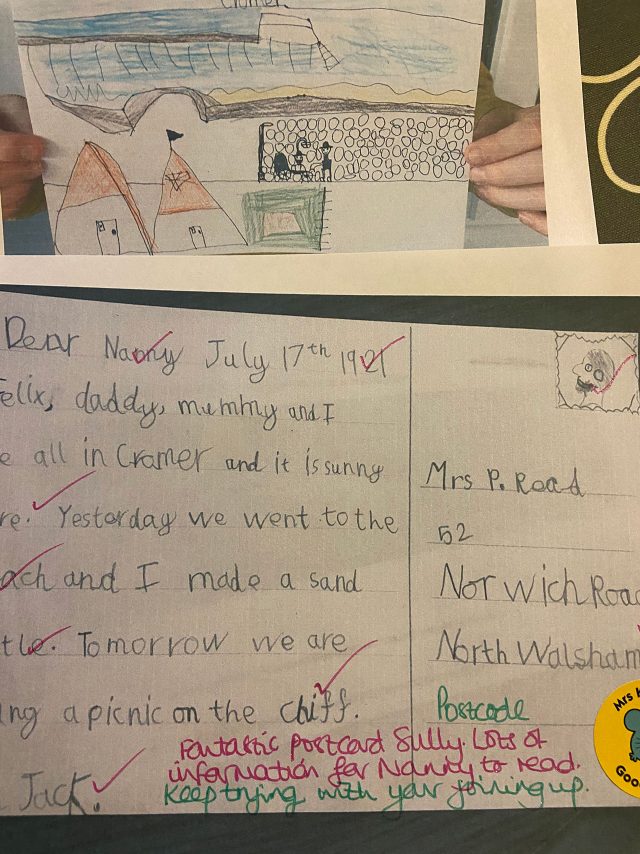 Cromer
Dear Nanny July 17th 1921
Felix, daddy, mummy and I
e all in Cromer and it is sunny
re. Yesterday we went to the
ach and I made a sand
tle. Tomorrow we are
ing a picnic on the chiff.
Jack.
Mrs P. Read
52
Norwich Roa
North Walsham
Postcode
Fantastic postcard Sully. Lots of
information for Nanny to read.
Keep trying with your joining up.
Mrs
Goo